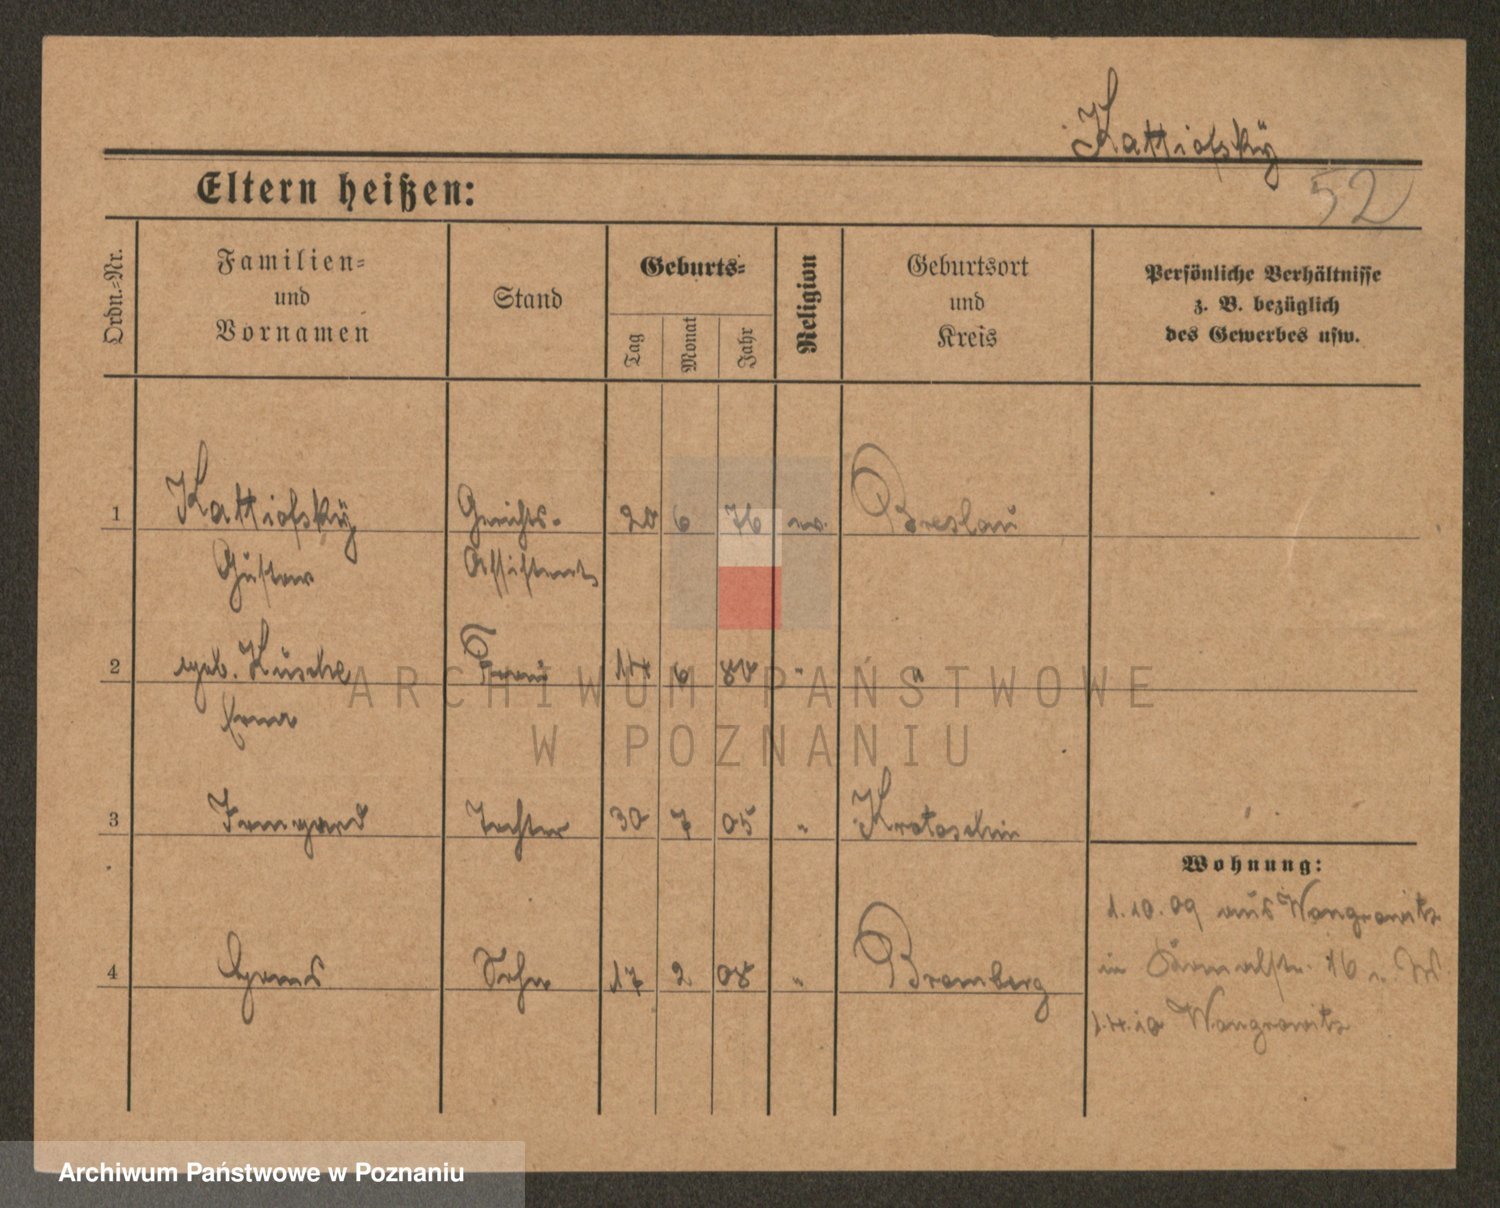 Kattiofsky
52
Eltern heißen:
Ordn.-Nr.
Familien-
und
Vornamen
Stand
Geburts-
Tag
Monat
Jahr
Religion
Geburtsort
und
Kreis
Persönliche Verhältnisse
z. B. bezüglich
des Gewerbes usw.
1 Kattiofsky Gerichts- 20 6 76 ev. Breslau
Gustav Assistent
2 geb. Kusche Frau 14 6 80 " "
Erna
ARCHIWUM PAŃSTWOWE
W POZNANIU
3 Irmgard Tochter 30 7 05 " Krotoschin
Wohnung:
1.10.09 aus Wongrowitz
in 16
4 Sohn 17 2 08 " Bromberg
1.4.10 Wongrowitz
Archiwum Państwowe w Poznaniu